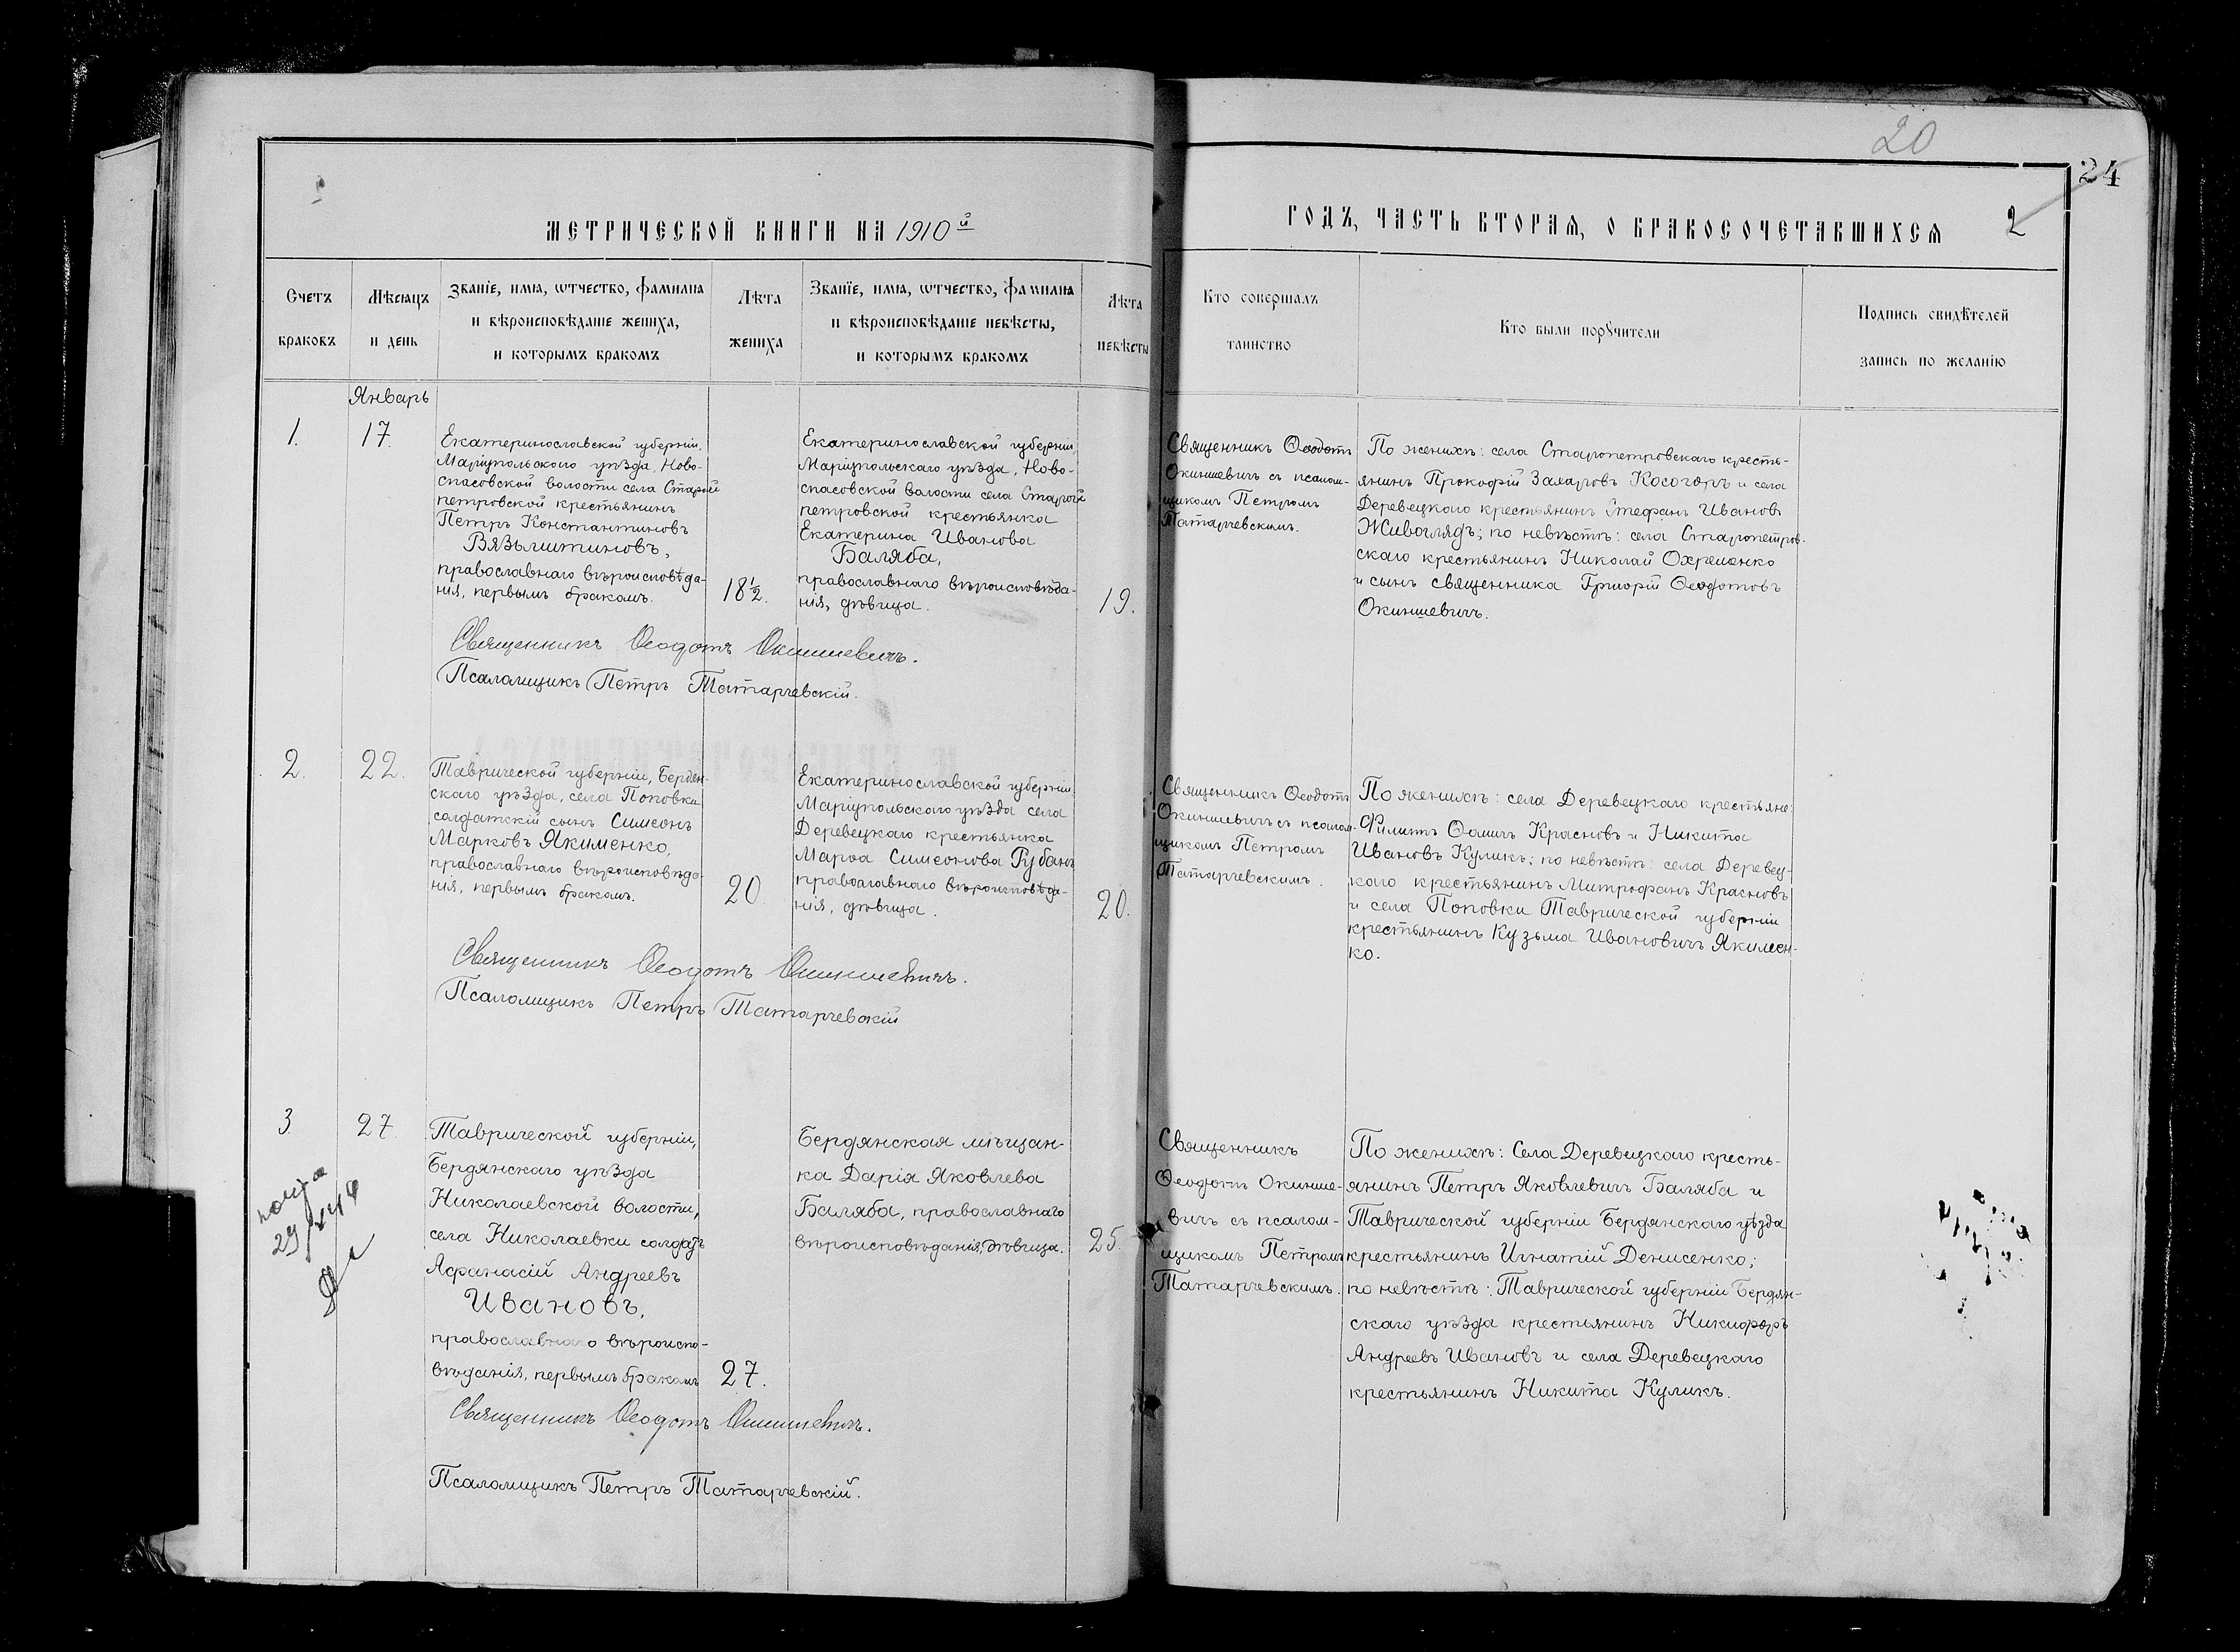 20
24
2
МЕТРИЧЕСКОЙ КНИГИ НА 1910й
ГОДЪ, ЧАСТЬ ВТОРАЯ, О БРАКОСОЧЕТАВШИХСЯ
Счетъ
браковъ
Мѣсяцъ
и день
Званіе, имя, ѡтчество, фамилиа
и вѣроисповѣданіе жениха,
и которымъ бракомъ
Лѣта
жениха
Званїе, имя, ѡтчество, фамилиа
и вѣроисповѣданіе невѣсты,
и которымъ бракомъ
Лѣта
невѣсты
Кто совершалъ
таинство
Кто были порꙋчители
Подпись свидѣтелей
запись по желанію
Январь
1.
17.
Екатеринославской губерніи,
Маріупольскаго уѣзда, Ново-
спасовской волости села Старой
петровской крестьянинъ
Петръ Константиновъ
православнаго вѣроисповѣда-
нія, первымъ бракомъ.
18½.
Екатеринославской губерніи,
Маріупольскаго уѣзда, Ново-
спасовской волости села Старой
петровской крестьянка
Екатерина Иванова
Баляба,
православнаго вѣроисповѣда-
нія, дѣвица.
19.
Священникъ Ѳеодотъ
Окиншевичъ съ псалом-
щикомъ Петромъ
Татарчевскимъ.
По женихѣ: села Старопетровскаго кресть-
янинъ Прокофій Захаровъ Косогоръ и села
Деревецкаго крестьянинъ Стефанъ Ивановъ
Живоглядъ; по невѣстѣ: села Старопетров-
скаго крестьянинъ Николай Охременко
и сынъ священника Григорій Ѳеодотовъ
Окиншевичъ.
Священникъ Ѳеодотъ Окиншевичъ.
Псаломщикъ Петръ Татарчевскій.
2.
22.
Таврической губерніи, Бердян-
скаго уѣзда, села Поповки
солдатскій сынъ Симеонъ
Марковъ Якименко,
православнаго вѣроисповѣда-
нія, первымъ бракомъ.
20
Екатеринославской губерніи
Маріупольскаго уѣзда села
Деревецкаго крестьянка
Марѳа Симеонова Рубанъ
православнаго вѣроисповѣда-
нія, дѣвица.
20.
Священникъ Ѳеодотъ
Окиншевичъ съ псалом-
щикомъ Петромъ
Татарчевскимъ.
По женихѣ: села Деревецкаго крестьяне:
Филиппъ Ѳомичъ Красновъ и Никита
Ивановъ Куликъ; по невѣстѣ: села Деревец-
каго крестьянинъ Митрофанъ Красновъ
и села Поповки Таврической губерніи
крестьянинъ Кузьма Ивановичъ Якимен-
ко.
Священникъ Ѳеодотъ Окиншевичъ.
Псаломщикъ Петръ Татарчевскій
3.
27.
Таврической губерніи,
Бердянскаго уѣзда
Николаевской волости,
села Николаевки солдатъ
Аѳанасій Андреевъ
Ивановъ,
православнаго вѣроиспо-
вѣданія, первымъ бракомъ
27.
Бердянская мѣщан-
ка Дарія Яковлева
Баляба, православнаго
вѣроисповѣданія, дѣвица.
25.
Священникъ
Ѳеодотъ Окинше-
вичъ съ псалом-
щикомъ Петромъ
Татарчевскимъ.
По женихѣ: Села Деревецкаго кресть-
янинъ Петръ Яковлевичъ Баляба и
Таврической губерніи Бердянскаго уѣзда
крестьянинъ Игнатій Денисенко;
по невѣстѣ: Таврической губерніи Бердян-
скаго уѣзда крестьянинъ Никифоръ
Андреевъ Ивановъ и села Деревецкаго
крестьянинъ Никита Куликъ.
Священникъ Ѳеодотъ Окиншевичъ.
Псаломщикъ Петръ Татарчевскій.